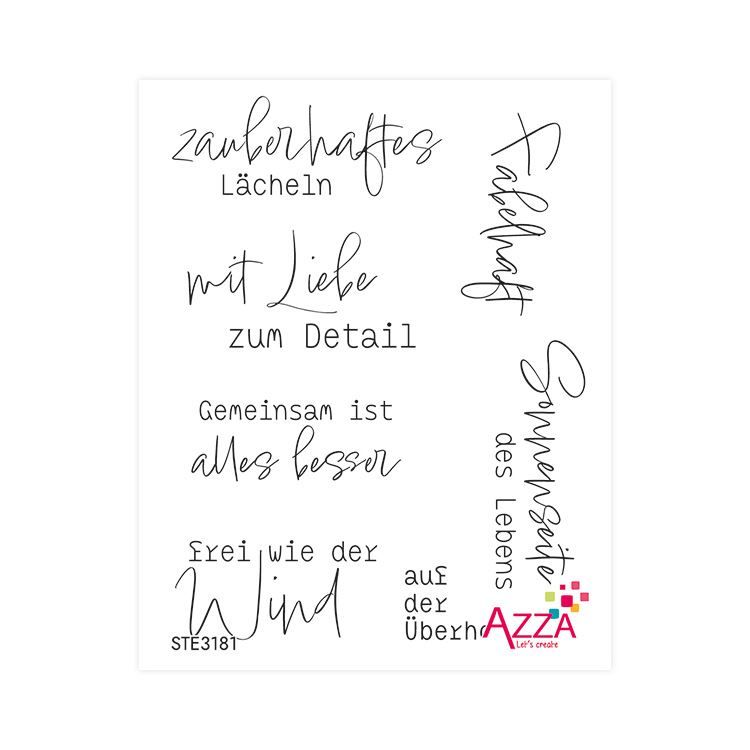 zauberhaftes
Lächeln
mit Liebe
zum Detail
Gemeinsam ist
alles besser
frei wie der
Wind
STE3181
Fabelhaft
Sonnenseite
des Lebens
auf
der
AZZA
Let's create